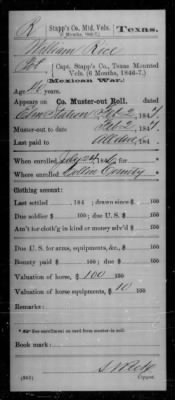 R | Stapp's Co. Mtd. Vols. (6 Months, 1846-7.) | Texas.
William Rice
Pvt, Capt. Stapp's Co., Texas Mounted Vols. (6 Months, 1846-7.)
(Mexican War.)
Age
Appears on Co. Muster-out Roll, dated
Station Feb 2, 184
Muster-out to date Feb 2, 184
Last paid to 184
When enrolled July
Where enrolled Collin County
Clothing account:
Last settled, 184 ; drawn since $ 100
Due soldier $ 100 ; due U. S. $ 100
Am't for cloth'g in kind or money adv'd $ 100
Due U. S. for arms, equipments, &c., $ 100
Bounty paid $ 100 ; due $ 100
Valuation of horse, $ 100 100
Valuation of horse equipments, $ 10 100
Remarks:
* See enrollment on card from muster-in roll.
Book mark:
Copyist.